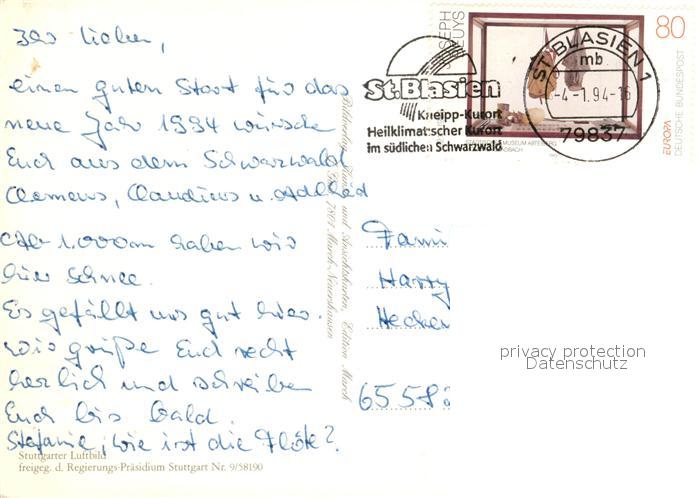 Ihr lieben,
einen guten Start für das
neue Jahr 1994 wünsche
Euch aus dem Schwarzwald
Clemens, Claudius u. Adelheid
Ab 1.000m haben wir
hier Schnee.
Es gefällt uns gut hier.
Wir grüße Euch recht
herzlich und schreiben
Euch bis bald.
Stefanie, wie ist die Flöte?
Stuttgarter Luftbild
freigeg. d. Regierungs-Präsidium Stuttgart Nr. 9/58190
und Ansichtskarten, Edition March
7801 March-Neuershausen
St. Blasien
Kneipp-Kurort
Heilklimatischer Kurort
im südlichen Schwarzwald
JOSEPH BEUYS
80
ST. BLASIEN 1
mb
-4.-1.94-16
79837
MUSEUM ABTEIBERG
EUROPA
DEUTSCHE BUNDESPOST
Fami
Harry
Hecker
6558
privacy protection
Datenschutz